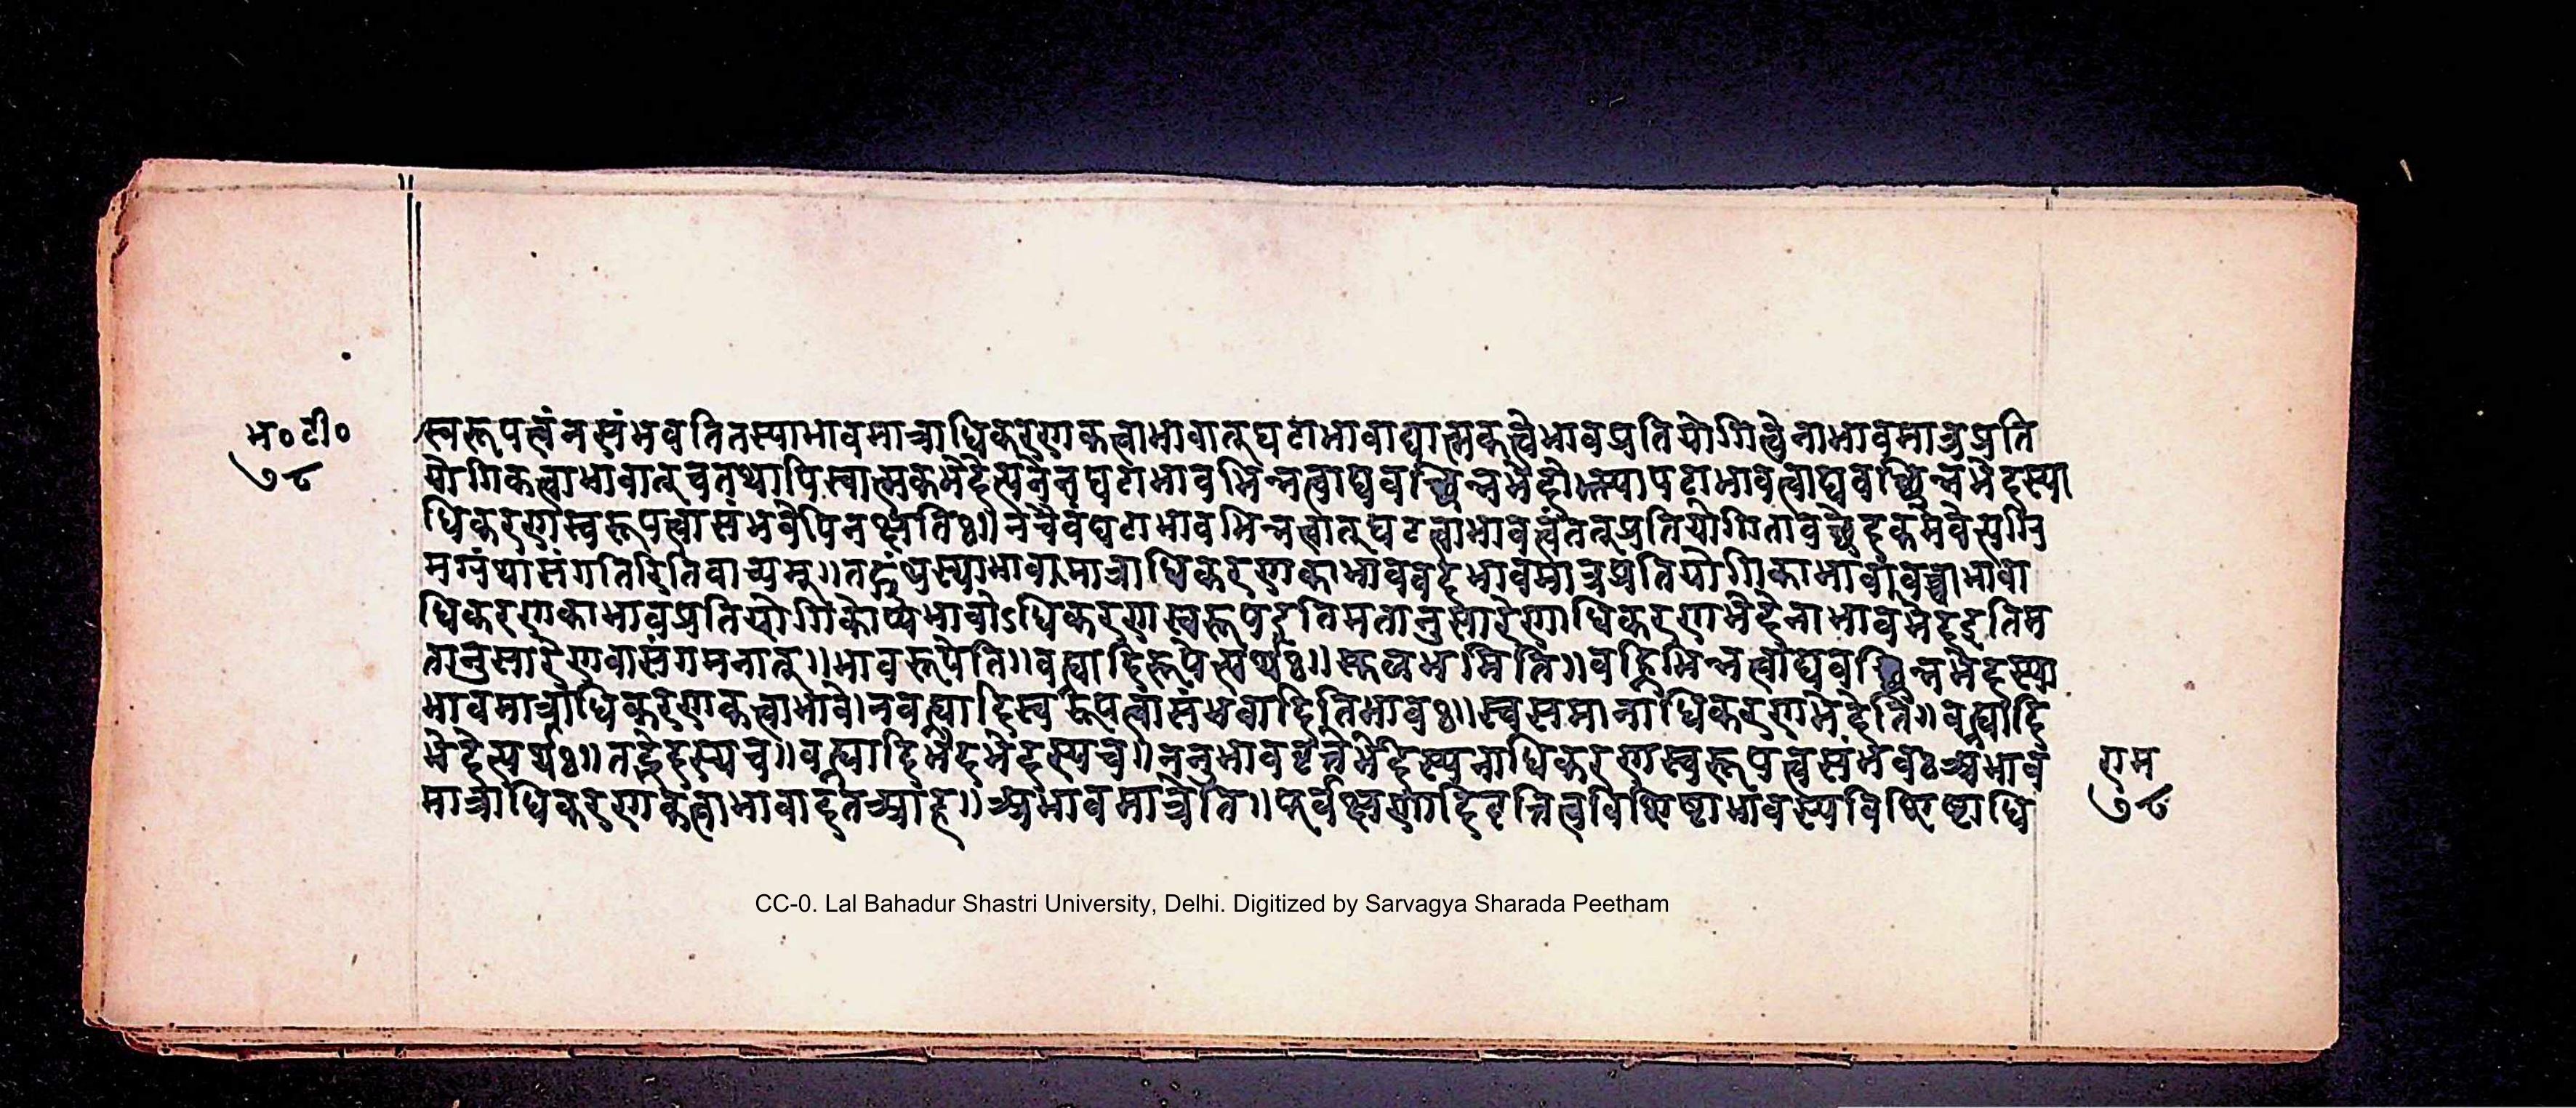 म॰ टी॰
७८
स्वरूपत्वं न संभवति तस्याभावमात्राधिकरणकत्वाभावात् घटाभावाद्यात्मकत्वेभावप्रतियोगित्वैनाभावमात्रप्रति
योगिकत्वाभावात् च तथापि स्वात्मकभेदेत्पनेन घटाभावभिन्नत्वाद्यवच्छिन्नभेदो पटाभावत्वाद्यवच्छिन्नभेदस्या
धिकरणस्वरूपत्वासंभवेपि न क्षतिः॥ न चैवं घटाभावभिन्नत्वात् घटत्वाभावत्वं तत्प्रतियोगितावच्छेदकमेवेत्यग्रि
मग्रंथासंगतिरिति वाच्यम्॥ तद्ग्रंथस्याभावमात्राधिकरणकाभाववदभावमात्रप्रतियोगिकाभावा
धिकरणकाभावप्रतियोगिकोप्यभावोऽधिकरणस्वरूप इति मतानुसारेणाधिकरणभेदेनाभावभेद इति म
तानुसारेण वा संगमनात्॥ भावरूपेति॥ वह्न्यादिरूपेत्यर्थः॥ वह्निभिन्नत्वाद्यवच्छिन्नभेदस्या
भावमात्राधिकरणकत्वाभावे। न वह्न्यादिस्वरूपत्वासंभवादिति भावः॥ स्वसमानाधिकरणभेदेति॥ वह्न्यादि
भेदेत्यर्थः॥ तद्भेदस्य च॥ वह्न्यादिभेदभेदस्य च॥ ननु भाववृत्तेर्भेदस्य नाधिकरणस्वरूपत्वसंभवः अभाव
मात्राधिकरणकत्वाभावादत आह॥ अभावमात्रेति॥ पूर्वक्षणादिवृत्तित्वविशिष्टाभावस्य विशिष्टाधि
राम
७८
CC-0. Lal Bahadur Shastri University, Delhi. Digitized by Sarvagya Sharada Peetham